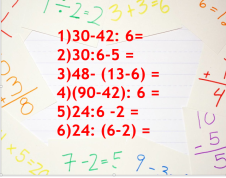 1÷2=2 3+3=6
1)30-42: 6=
2)30:6-5 =
3)48- (13-6) =
4)(90-42): 6 =
5)24:6 -2 =
6)24: (6-2) =
10
-5
5
×5=20
7-2=5 9-3